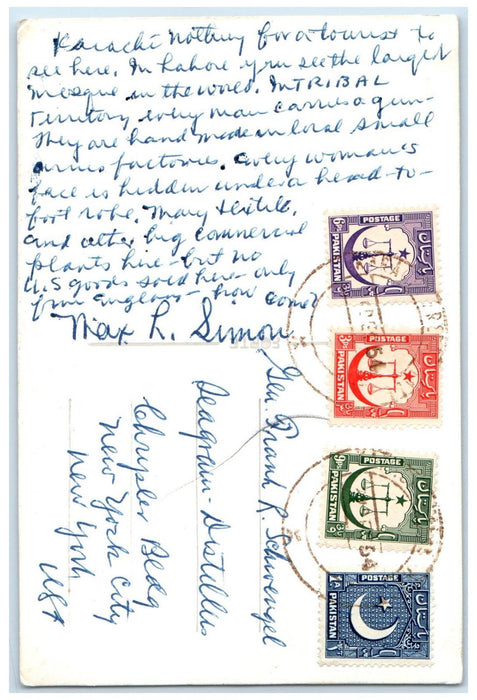 Karachi nothing for a tourist to
see here. In Lahore you see the largest
mosque in the world. In TRIBAL
Territory every man carries a gun-
They are hand made in local small
arms factories. Every woman's
face is hidden under a head-to-
foot robe. Many textile
and other big commercial
plants here - but no
U.S goods sold here - only
from England - how come?
Max L. Simon
Gen. Frank R. Schwengel
Seagram-Distillers
Chrysler Bldg
New York City
New York
USA
6Ps
POSTAGE
PAKISTAN
پاکستان
3Ps
POSTAGE
PAKISTAN
پاکستان
9Ps
POSTAGE
PAKISTAN
پاکستان
1A
POSTAGE
PAKISTAN
پاکستان
54
54